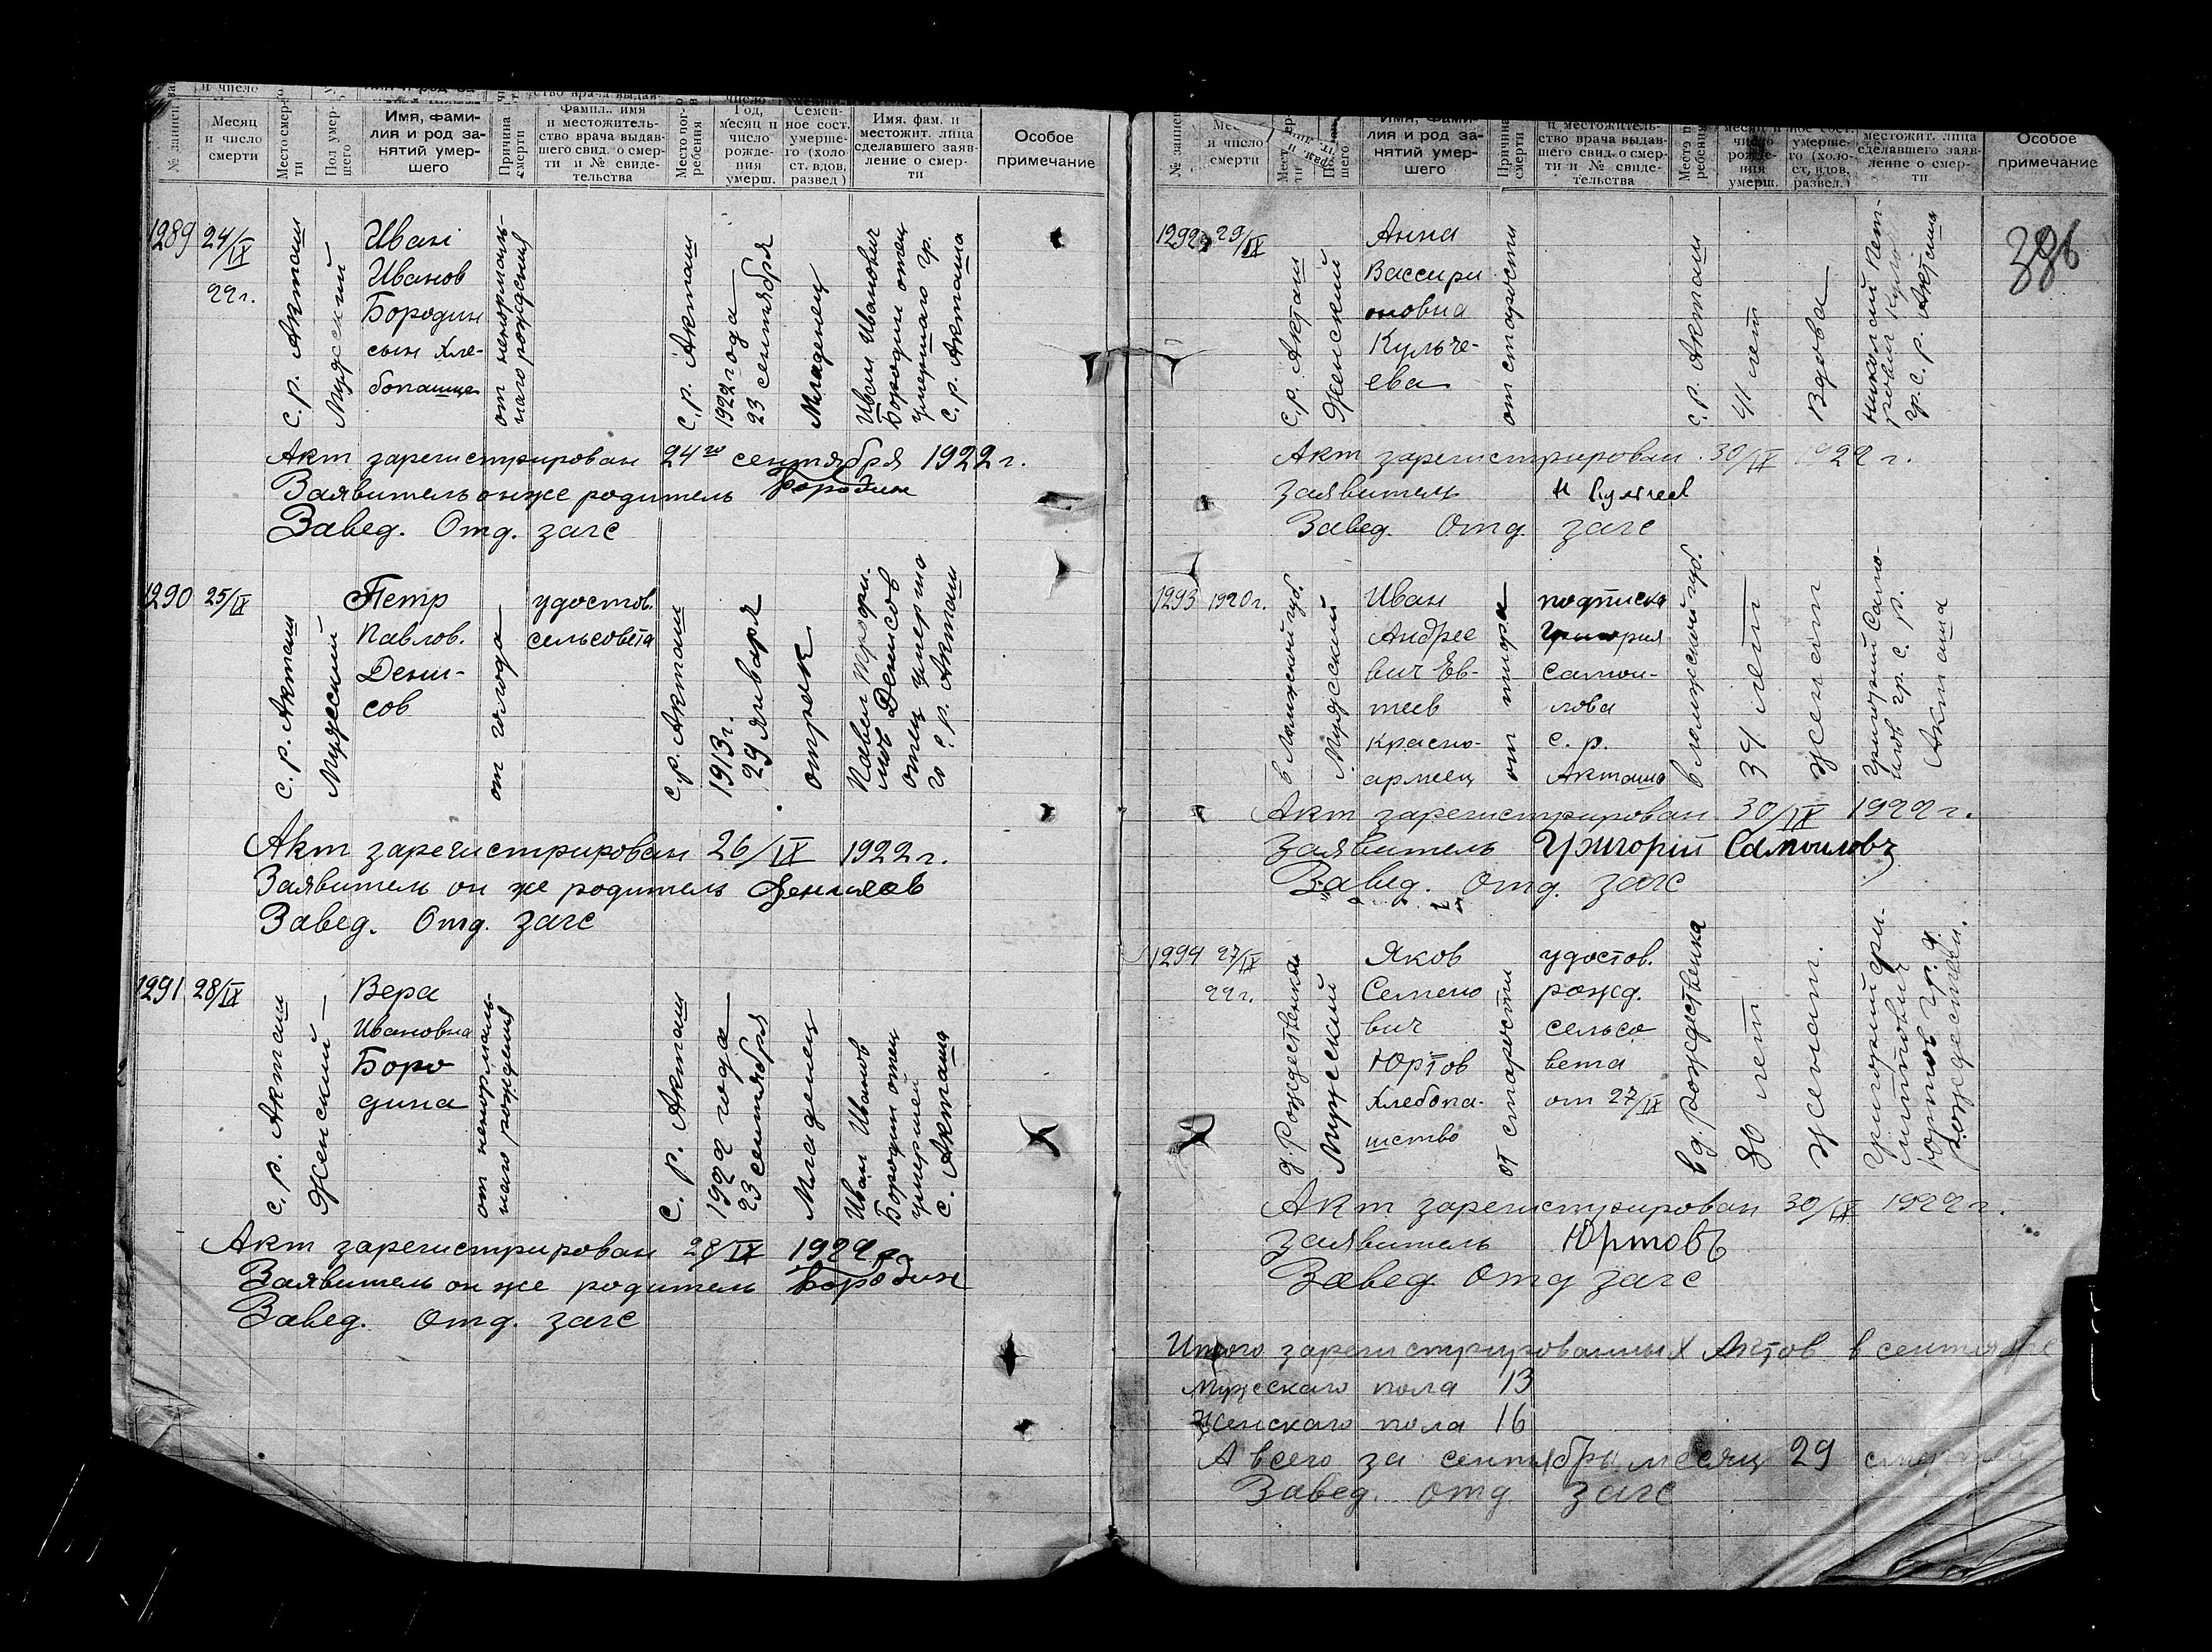 № записи
Месяц
и число
смерти
Место смер-
ти
Пол умер-
шего
Имя, фами-
лия и род за-
нятий умер-
шего
Причина
смерти
Фамил., имя
и местожитель-
ство врача выдав-
шего свид. о смер-
ти и № свиде-
тельства
Место пог-
ребения
Год,
месяц и
число
рожде-
ния
умерш.
Семей-
ное сост.
умерше-
го (холо
ст. вдов,
развед.)
Имя. фам. и
местожит. лица
сделавшего заяв-
ление о смер-
ти
Особое
примечание
1289
24/IX
22 г.
С. р. Акташ
Мужеский
Иван
Иванов
Бородин
сын хле-
бопашце
от ненормаль-
наго рождения
С. р. Акташ
1922 года
23 сентября
Младенец
Иван Иванович
Бородин отец
умершаго гр.
с. р. Акташа
Акт зарегистрирован 24го сентября 1922 г.
Заявитель он же родитель Бородин
Завед. Отд. загс
1290
25/IX
С. р. Акташ
Мужеский
Петр
Павлов.
Дени-
сов
от голода
удостов.
сельсовета
С. р. Акташ
1913 г.
29 января
отрок
Павел
Денисов
отец умерша
го с. р. Акташ
Акт зарегистрирован 26/IX 1922 г.
Заявитель он же родитель Денисов
Завед. Отд. загс
1291
28/IX
С. р. Акташ
Женский
Вера
Ивановна
Боро
дина
от ненормаль-
наго рождения
С. р. Акташ
1922 года
23 сентября
Младенец
Иван Иванов
Бородин отец
умершей
с. Акташа
Акт зарегистрирован 28/IX 1922 г.
Заявитель он же родитель Бородин
Завед. Отд. загс
и число
смерти
лия и род за-
нятий умер-
шего
Причина
смерти
и местожитель-
ство врача выдав-
шего свид. о смер-
ти и № свиде-
тельства
число
рожде-
ния
умерш.
умерше-
го (холо-
ст, вдов,
развед.)
местожит. лица
сделавшего заяв-
ление о смер-
ти
Особое
примечание
386
1292
29/IX
С. р. Акташ
Женский
Анна
Вассири
оновна
Кульче-
ева
от старости
С. р. Акташ
41 лет
Вдова
Николай Пет-
гр. с. р. Акташа
Акт зарегистрирован 30/IX 1922 г.
Заявитель
Завед. Отд. загс
1293
1920 г.
Мужеский
Иван
Андрее
вич Ев-
теев
красно-
армеец
от тифа
подписка
Григория
Самои-
лова
с. р.
Акташа
34 лет
женат
Григорий Само-
илов гр. с. р.
Акташа
Акт зарегистрирован 30/IX 1922 г.
Заявитель Григорий Самоиловъ
Завед. Отд. загс
1294
27/IX
22 г.
д. Рождественка
Мужеский
Яков
Семено
вич
Юртов
хлебопа-
шство
от старости
удостов.
рожд.
сельсо
вета
от 27/IX
в д. Рождественка
80 лет
женат.
Григорий Фи-
липпович
Юртов гр. д.
Рождествен.
Акт зарегистрирован 30/IX 1922 г.
Заявитель Юртовъ
Завед Отд загс
Итого зарегистрированных Актов в сентябре
Мужескаго пола 13
Женскаго пола 16
А всего за сентябрь месяц 29 смертей
Завед. отд загс